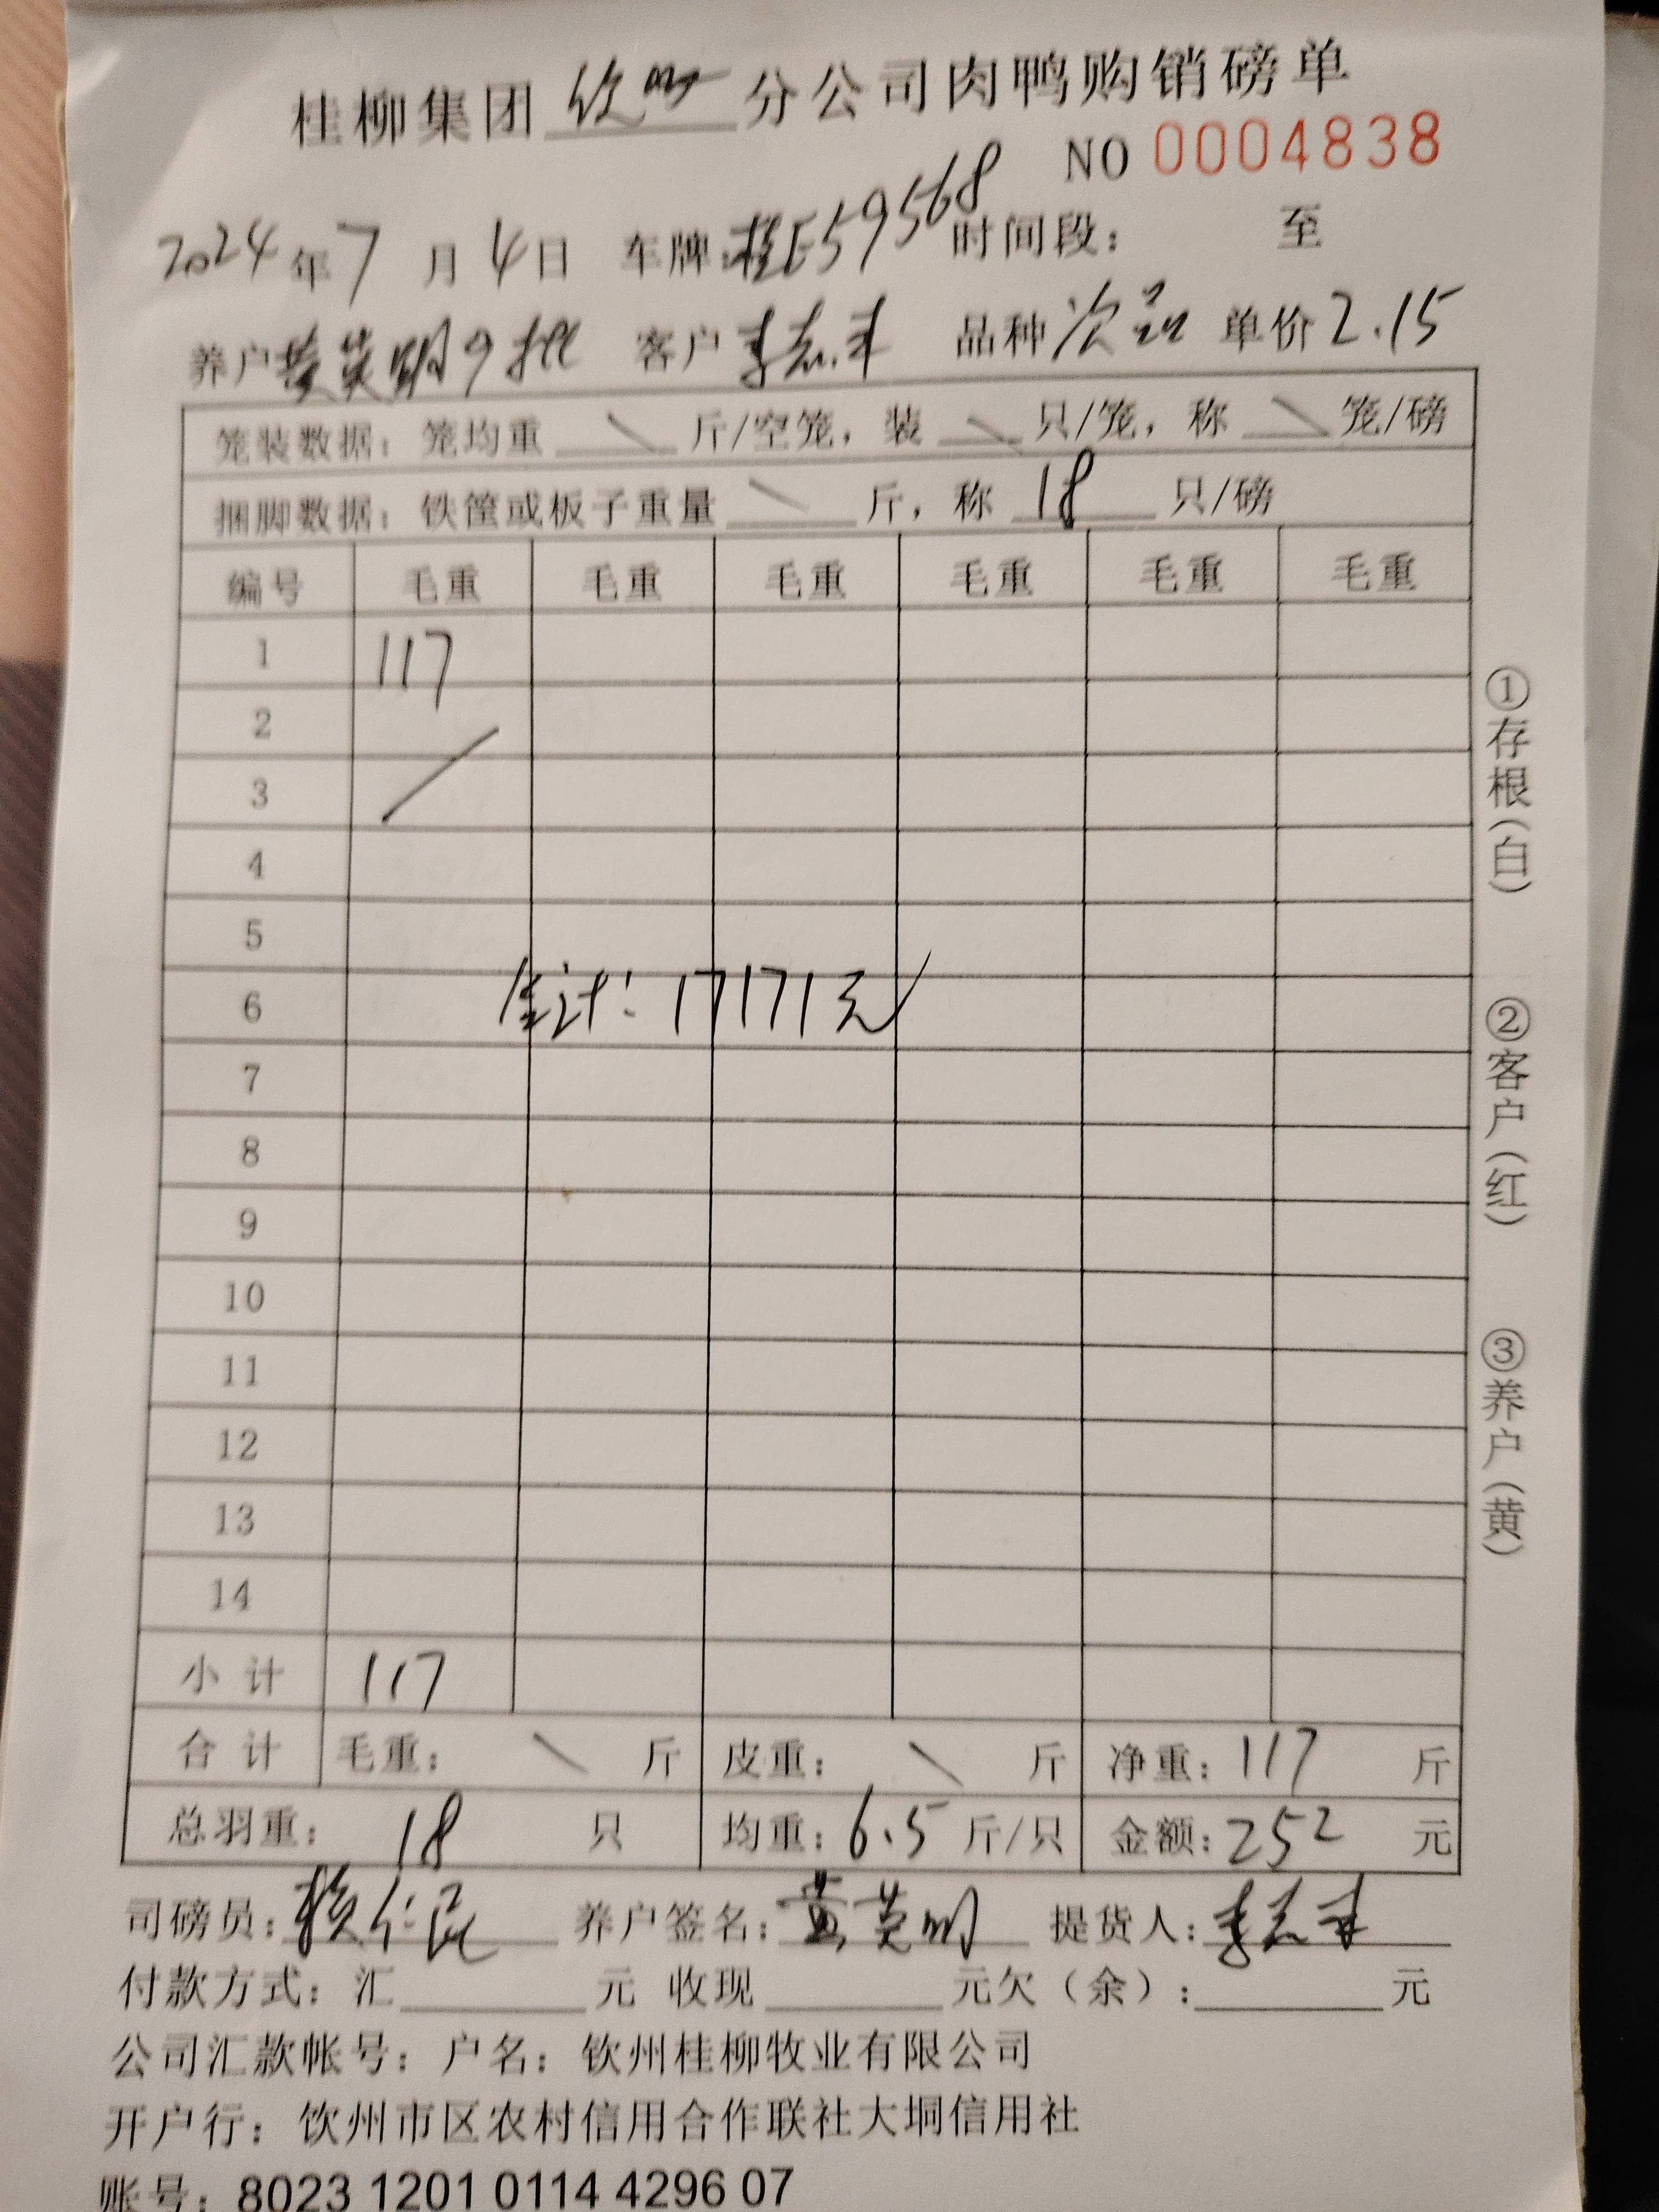 桂柳集团 钦州 分公司肉鸭购销磅单
NO 0004838
2024年7月4日 车牌:桂E59568 时间段: 至
养户黄英明9批 客户李志丰 品种次品 单价2.15
笼装数据: 笼均重 \ 斤/空笼, 装 \ 只/笼, 称 \ 笼/磅
捆脚数据: 铁筐或板子重量 \ 斤, 称 18 只/磅
编号 毛重 毛重 毛重 毛重 毛重 毛重
1 117
2
3
4
5
6 合计: 17171元
7
8
9
10
11
12
13
14
小计 117
合计 毛重: \ 斤 皮重: \ 斤 净重: 117 斤
总羽重: 18 只 均重: 6.5 斤/只 金额: 252 元
司磅员: 仁民 养户签名: 黄英明 提货人: 李志丰
付款方式: 汇 元 收现 元欠(余): 元
公司汇款帐号: 户名: 钦州桂柳牧业有限公司
开户行: 钦州市区农村信用合作联社大垌信用社
账号: 8023 1201 0114 4296 07
①存根(白)
②客户(红)
③养户(黄)